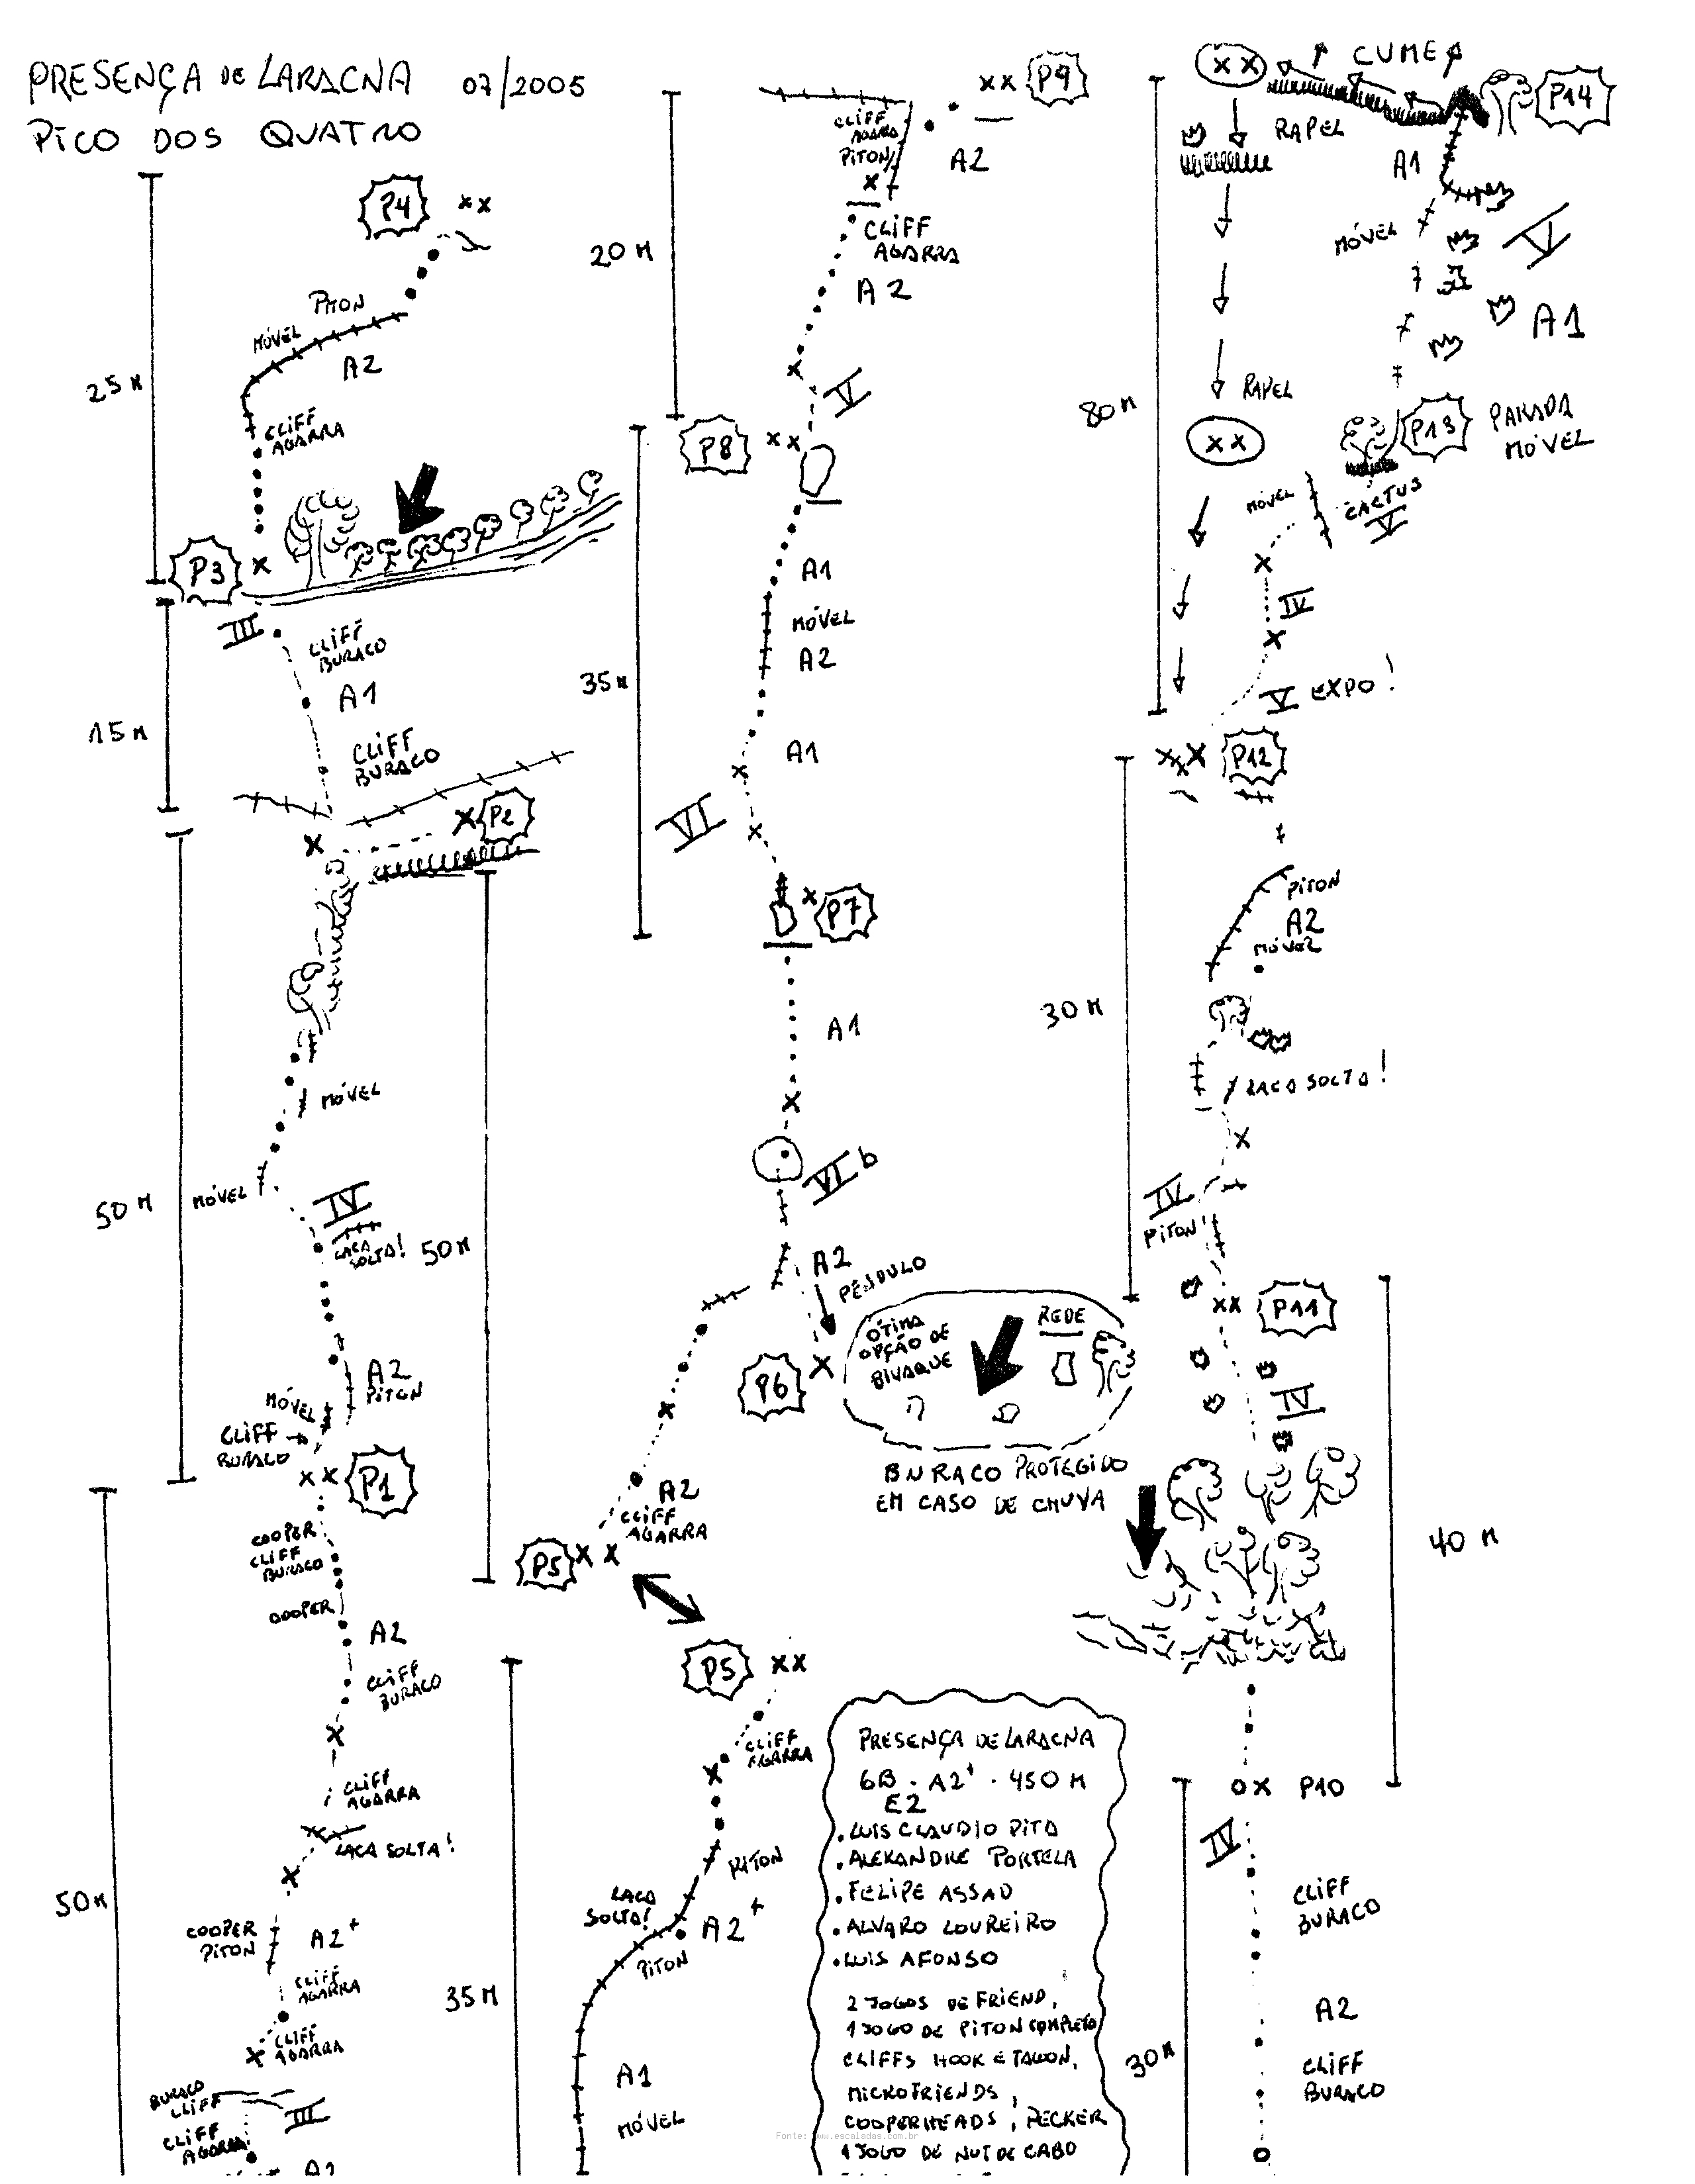 PRESENÇA DE LARACNA 07/2005
PICO DOS QUATRO
P4
XX
PITON
MÓVEL
A2
25 M
CLIFF
AGARRA
P3
X
III
CLIFF
BURACO
A1
15 M
CLIFF
BURACO
X P2
X
MÓVEL
MÓVEL
IV
LACA
SOLTA!
50 M
50 M
A2
PITON
MÓVEL
CLIFF
BURACO
XX P1
COOPER
CLIFF
BURACO
COOPER
A2
CLIFF
BURACO
X
CLIFF
AGARRA
LACA SOLTA!
X
50 M
COOPER
PITON
A2+
CLIFF
AGARRA
CLIFF
AGARRA
X
BURACO
CLIFF
III
CLIFF
AGARRA
A2
XX P9
CLIFF
AGARRA
PITON
X
A2
20 M
CLIFF
AGARRA
A2
X
V
P8 XX
A1
MÓVEL
A2
35 M
A1
X
VI
X
X P7
A1
X
VI b
A2
PÊNDULO
P6 X
ÓTIMA
OPÇÃO DE
BIVAQUE
REDE
BURACO PROTEGIDO
EM CASO DE CHUVA
X
A2
CLIFF
AGARRA
P5 XX
P5 XX
CLIFF
AGARRA
X
PITON
LACA
SOLTA!
A2+
PITON
35 M
A1
MÓVEL
PRESENÇA DE LARACNA
6B . A2+ . 450 M
E2
. LUIS CLAUDIO PITA
. ALEXANDRE PORTELA
. FELIPE ASSAD
. ALVARO LOUREIRO
. LUIS AFONSO
2 JOGOS DE FRIEND,
1 JOGO DE PITON COMPLETO
CLIFFS HOOK E TALON,
MICROFRIENDS,
COOPERHEADS, PECKER
1 JOGO DE NUT DE CABO
Fonte: www.escaladas.com.br
XX
CUME
P14
RAPEL
A1
MÓVEL
V
A1
RAPEL
80 M
XX
P13 PARADA
MÓVEL
MÓVEL
CACTUS
V
X
IV
X
V EXPO!
XXX P12
PITON
A2
MÓVEL
30 M
LACA SOLTA!
X
IV
PITON
XX P11
IV
40 M
OX P10
IV
CLIFF
BURACO
A2
30 M
CLIFF
BURACO